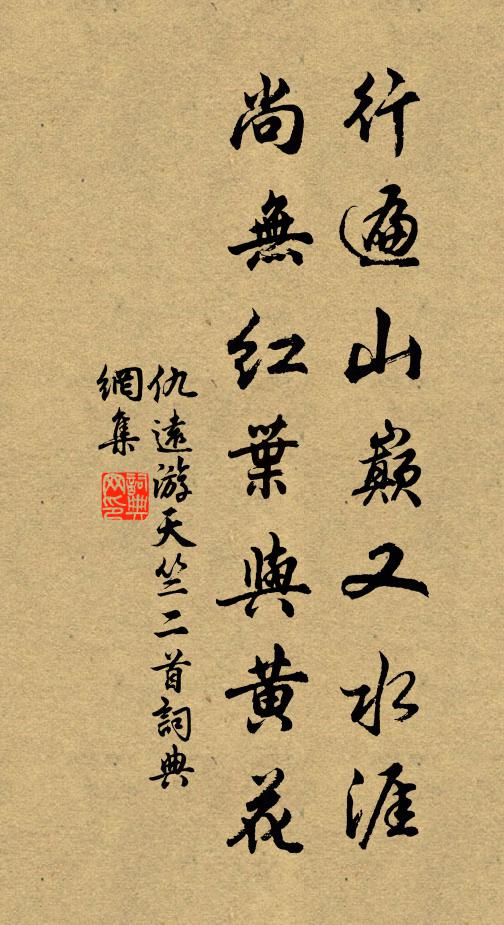 行遍山巔又水涯
尚無紅葉與黃花
仇遠游天竺二首詞典
網集
詞典
网印